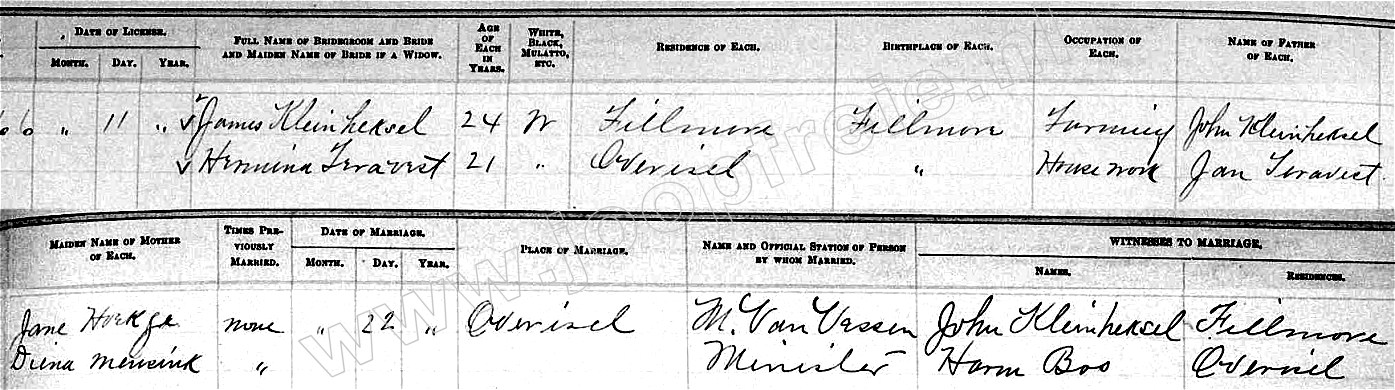 DATE OF LICENSE.
FULL NAME OF BRIDEGROOM AND BRIDE AND MAIDEN NAME OF BRIDE IF A WIDOW.
AGE OF EACH IN YEARS.
WHITE, BLACK, MULATTO, ETC.
RESIDENCE OF EACH.
BIRTHPLACE OF EACH.
OCCUPATION OF EACH.
NAME OF FATHER OF EACH.
MONTH. DAY. YEAR.
66 " 11 " James Kleinheksel 24 W Fillmore Fillmore Farming John Kleinheksel
Hermina Teravest 21 " Overisel " Housework Jan Teravest.
MAIDEN NAME OF MOTHER OF EACH.
TIMES PREVIOUSLY MARRIED.
DATE OF MARRIAGE.
MONTH. DAY. YEAR.
PLACE OF MARRIAGE.
NAME AND OFFICIAL STATION OF PERSON BY WHOM MARRIED.
WITNESSES TO MARRIAGE.
NAMES. RESIDENCES.
Jane none " 22 " Overisel M. Van Vessen John Kleinheksel Fillmore
Diena Mensink " Minister Harm Bos Overisel